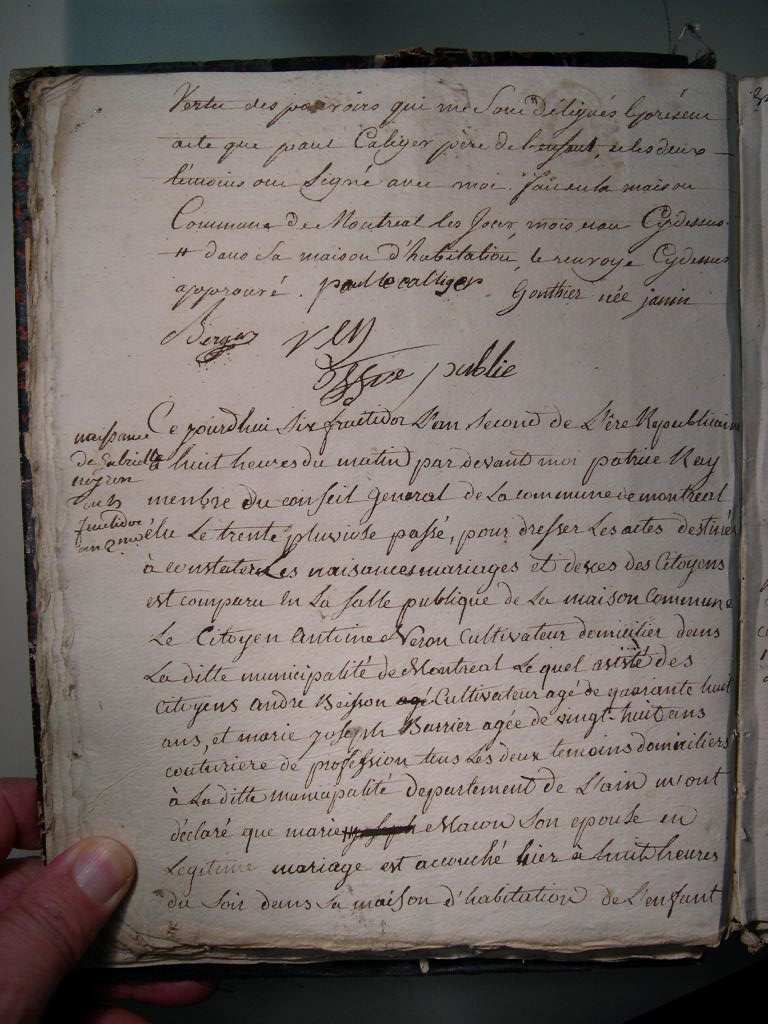 Vertu des pouvoirs qui me sont délégués le présent
acte que paul Caliger père de l'enfant, et les deux
témoins ont signé avec moi. fait en la maison
Commune de Montreal les Jour mois et an Cydessus
# dans sa maison d'habitation, le renvoye Cydessus
approuvé. paul le calliger Gonthier née janin
Berger
public
Ce jourdhui six fructidor L'an second de L'ère Republicaine
à huit heures du matin par devant moi patrice Ray
membre du conseil general de La commune de montreal
élu Le trente pluviose passé, pour dresser Les actes destinés
à constater Les naisances mariages et deces des Citoyens
est comparu en La salle publique de La maison Commune
Le Citoyen Antoine Neron Cultivateur domicilier dans
La ditte municipalité de Montreal Lequel assisté des
Citoyens andré Beisson agé Cultivateur agé de quarante huit
ans, et marie joseph Barrier agée de vingt-huit ans
couturiere de profession tous Les deux temoins domiciliers
à La ditte municipalité departement de L'ain m'ont
déclaré que marie joseph Macon son epouse en
Legitime mariage est accouché hier à huit heures
du soir dans sa maison d'habitation de L'enfant
naissance
de Gabrielle
neyron
fructidor
an 2